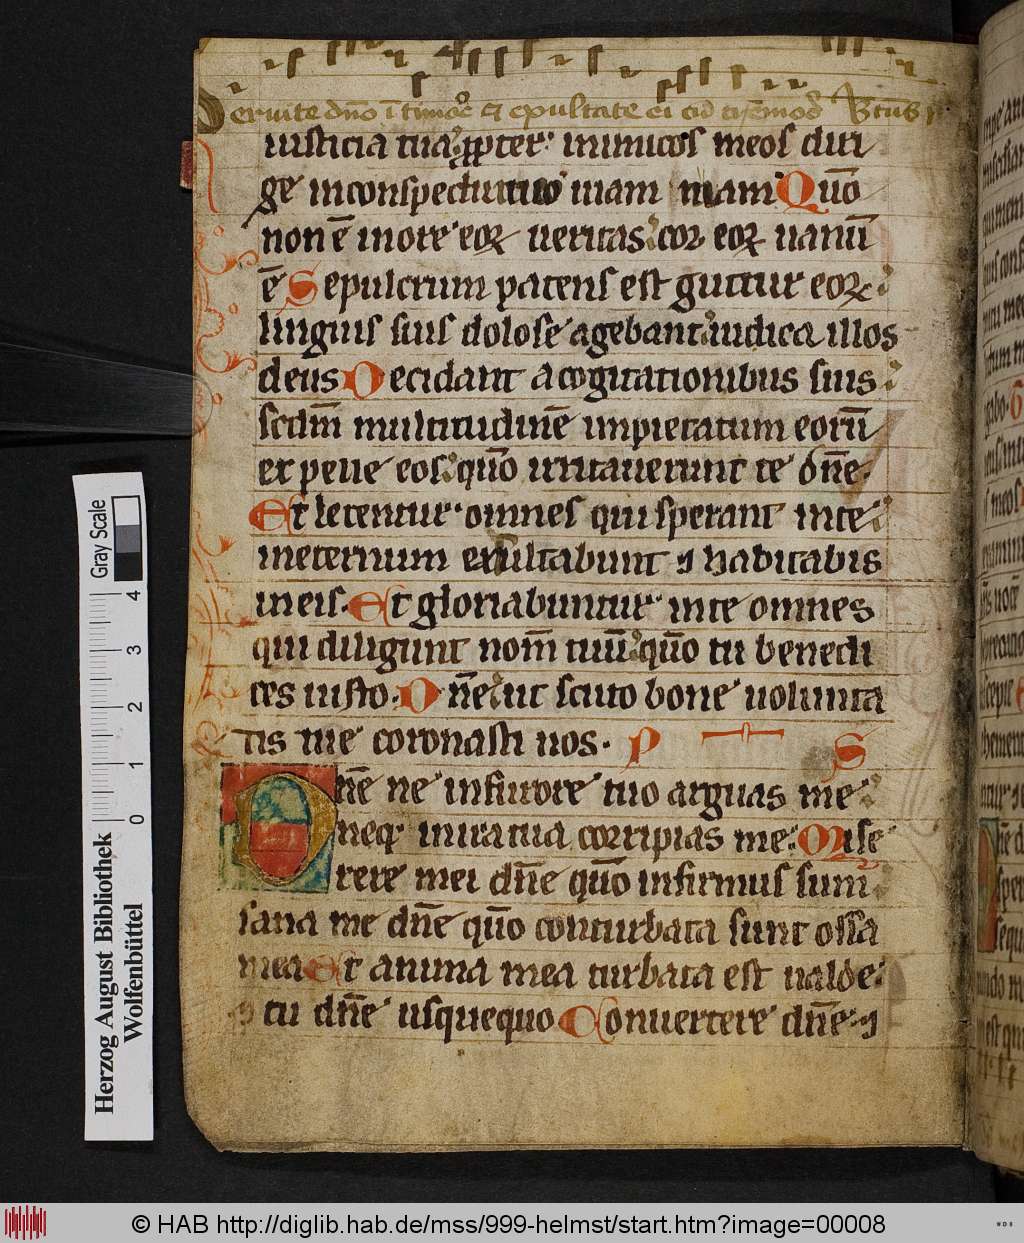 Seruite dn̄o ī timoꝛe ⁊ exultate ei cū tremoꝛe
iusticia tua ꝓpter inimicos meos diri
ge in conspectu tuo uiam meam Quō
non ē in ore eoꝝ ueritas cor eoꝝ uanū
ē Sepulcrum patens est guttur eoꝝ
linguis suis dolose agebant iudica illos
deus Decidant a cogitationibus suis
scdm̄ multitudinē impietatum eorū
expelle eos quō irritauerunt te dn̄e
Et letentur omnes qui sperant in te
in eternum exultabunt ⁊ habitabis
in eis. Et gloriabuntur in te omnes
qui diligunt nom̄ tuū quō tu benedi
ces iusto. Dn̄e ut scuto bone uolunta
tis tue coronasti nos. P S
Dn̄e ne in furore tuo arguas me
neq in ira tua corripias me. Mise
rere mei dn̄e quō infirmus sum
sana me dn̄e quō conturbata sunt ossa
mea Et anima mea turbata est ualde
⁊ tu dn̄e usquequo Conuertere dn̄e ⁊
Gray Scale
0 1 2 3 4
Herzog August Bibliothek
Wolfenbüttel
© HAB http://diglib.hab.de/mss/999-helmst/start.htm?image=00008